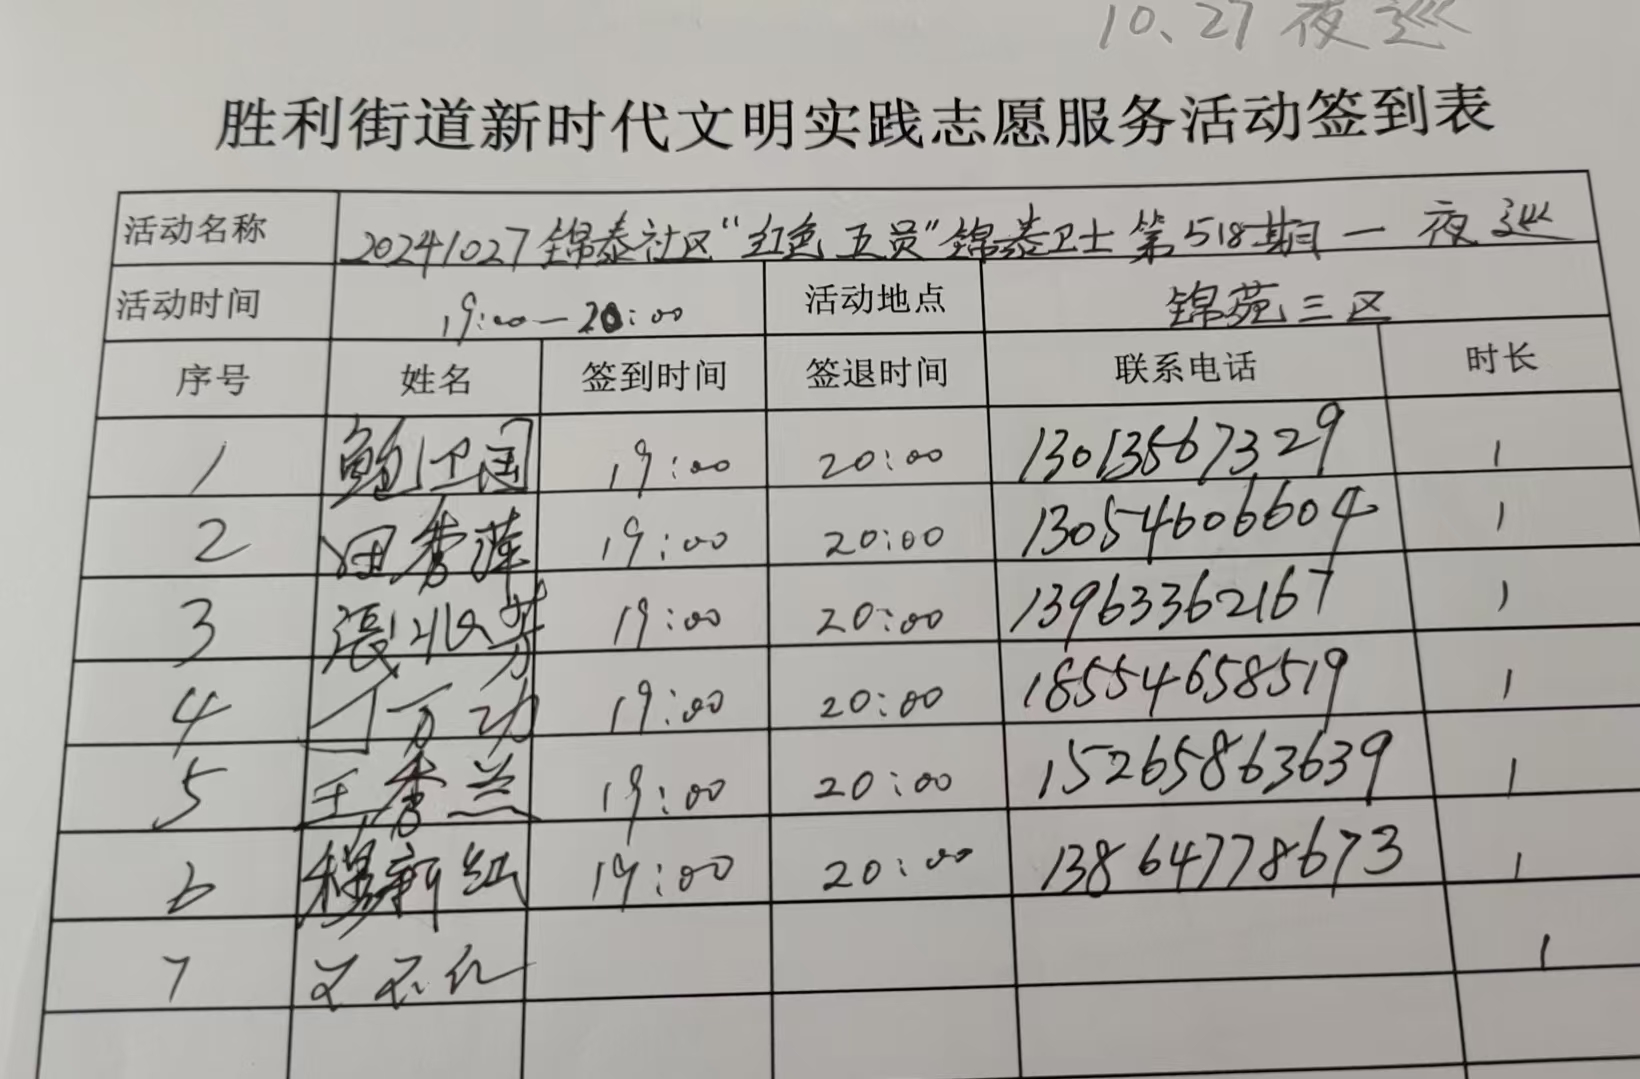 10、27 夜巡
胜利街道新时代文明实践志愿服务活动签到表
活动名称 20241027锦泰社区“红色五员”锦泰卫士第518期一夜巡
活动时间 19:00—20:00 活动地点 锦苑三区
序号 姓名 签到时间 签退时间 联系电话 时长
1 鲍卫国 19:00 20:00 13013567329 1
2 田秀萍 19:00 20:00 13054606604 1
3 张淑芳 19:00 20:00 13963362167 1
4 丁万功 19:00 20:00 18554658519 1
5 王秀兰 19:00 20:00 15265863639 1
6 穆新红 19:00 20:00 13864778673 1
7 1